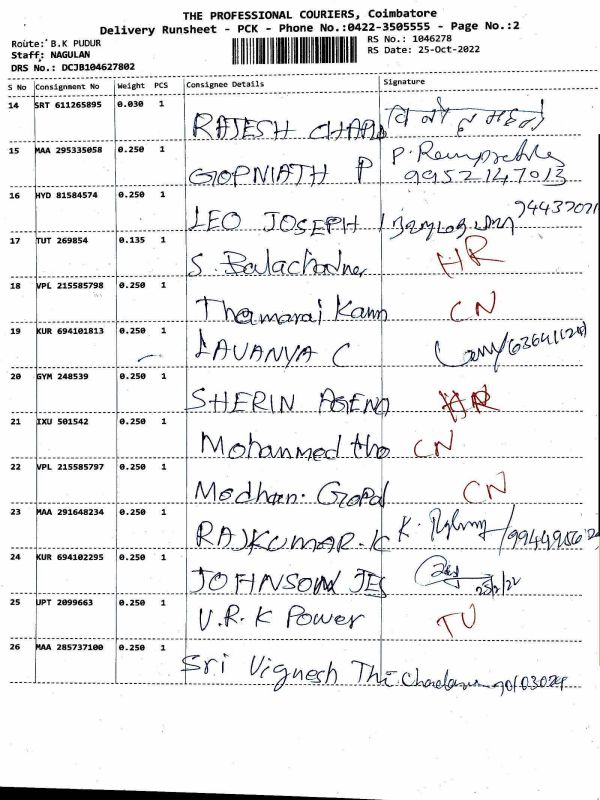 THE PROFESSIONAL COURIERS, Coimbatore
Delivery Runsheet - PCK - Phone No.:0422-3505555 - Page No.:2
Route: B.K PUDUR
RS No.: 1046278
Staff: NAGULAN
RS Date: 25-Oct-2022
DRS No.: DCJB104627802
S No Consignment No Weight PCS Consignee Details Signature
14 SRT 611265895 0.030 1 RAJESH
15 MAA 295335058 0.250 1 GOPNIATH P
9952147013
16 HYD 81584574 0.250 1 LEO JOSEPH
17 TUT 269854 0.135 1 S. Balachadner HR
18 VPL 215585798 0.250 1 Thamarai Kann CN
19 KUR 694101813 0.250 1 LAVANYA C
20 GYM 248539 0.250 1 SHERIN HR
21 IXU 501542 0.250 1 Mohanmed tho CN
22 VPL 215585797 0.250 1 Madhan. Gopal CN
23 MAA 291648234 0.250 1 RAJKUMAR.K
24 KUR 694102295 0.250 1 JOHNSON JES
25 UPT 2099663 0.250 1 V.R.K Power TU
26 MAA 285737100 0.250 1 Sri Vignesh Thi